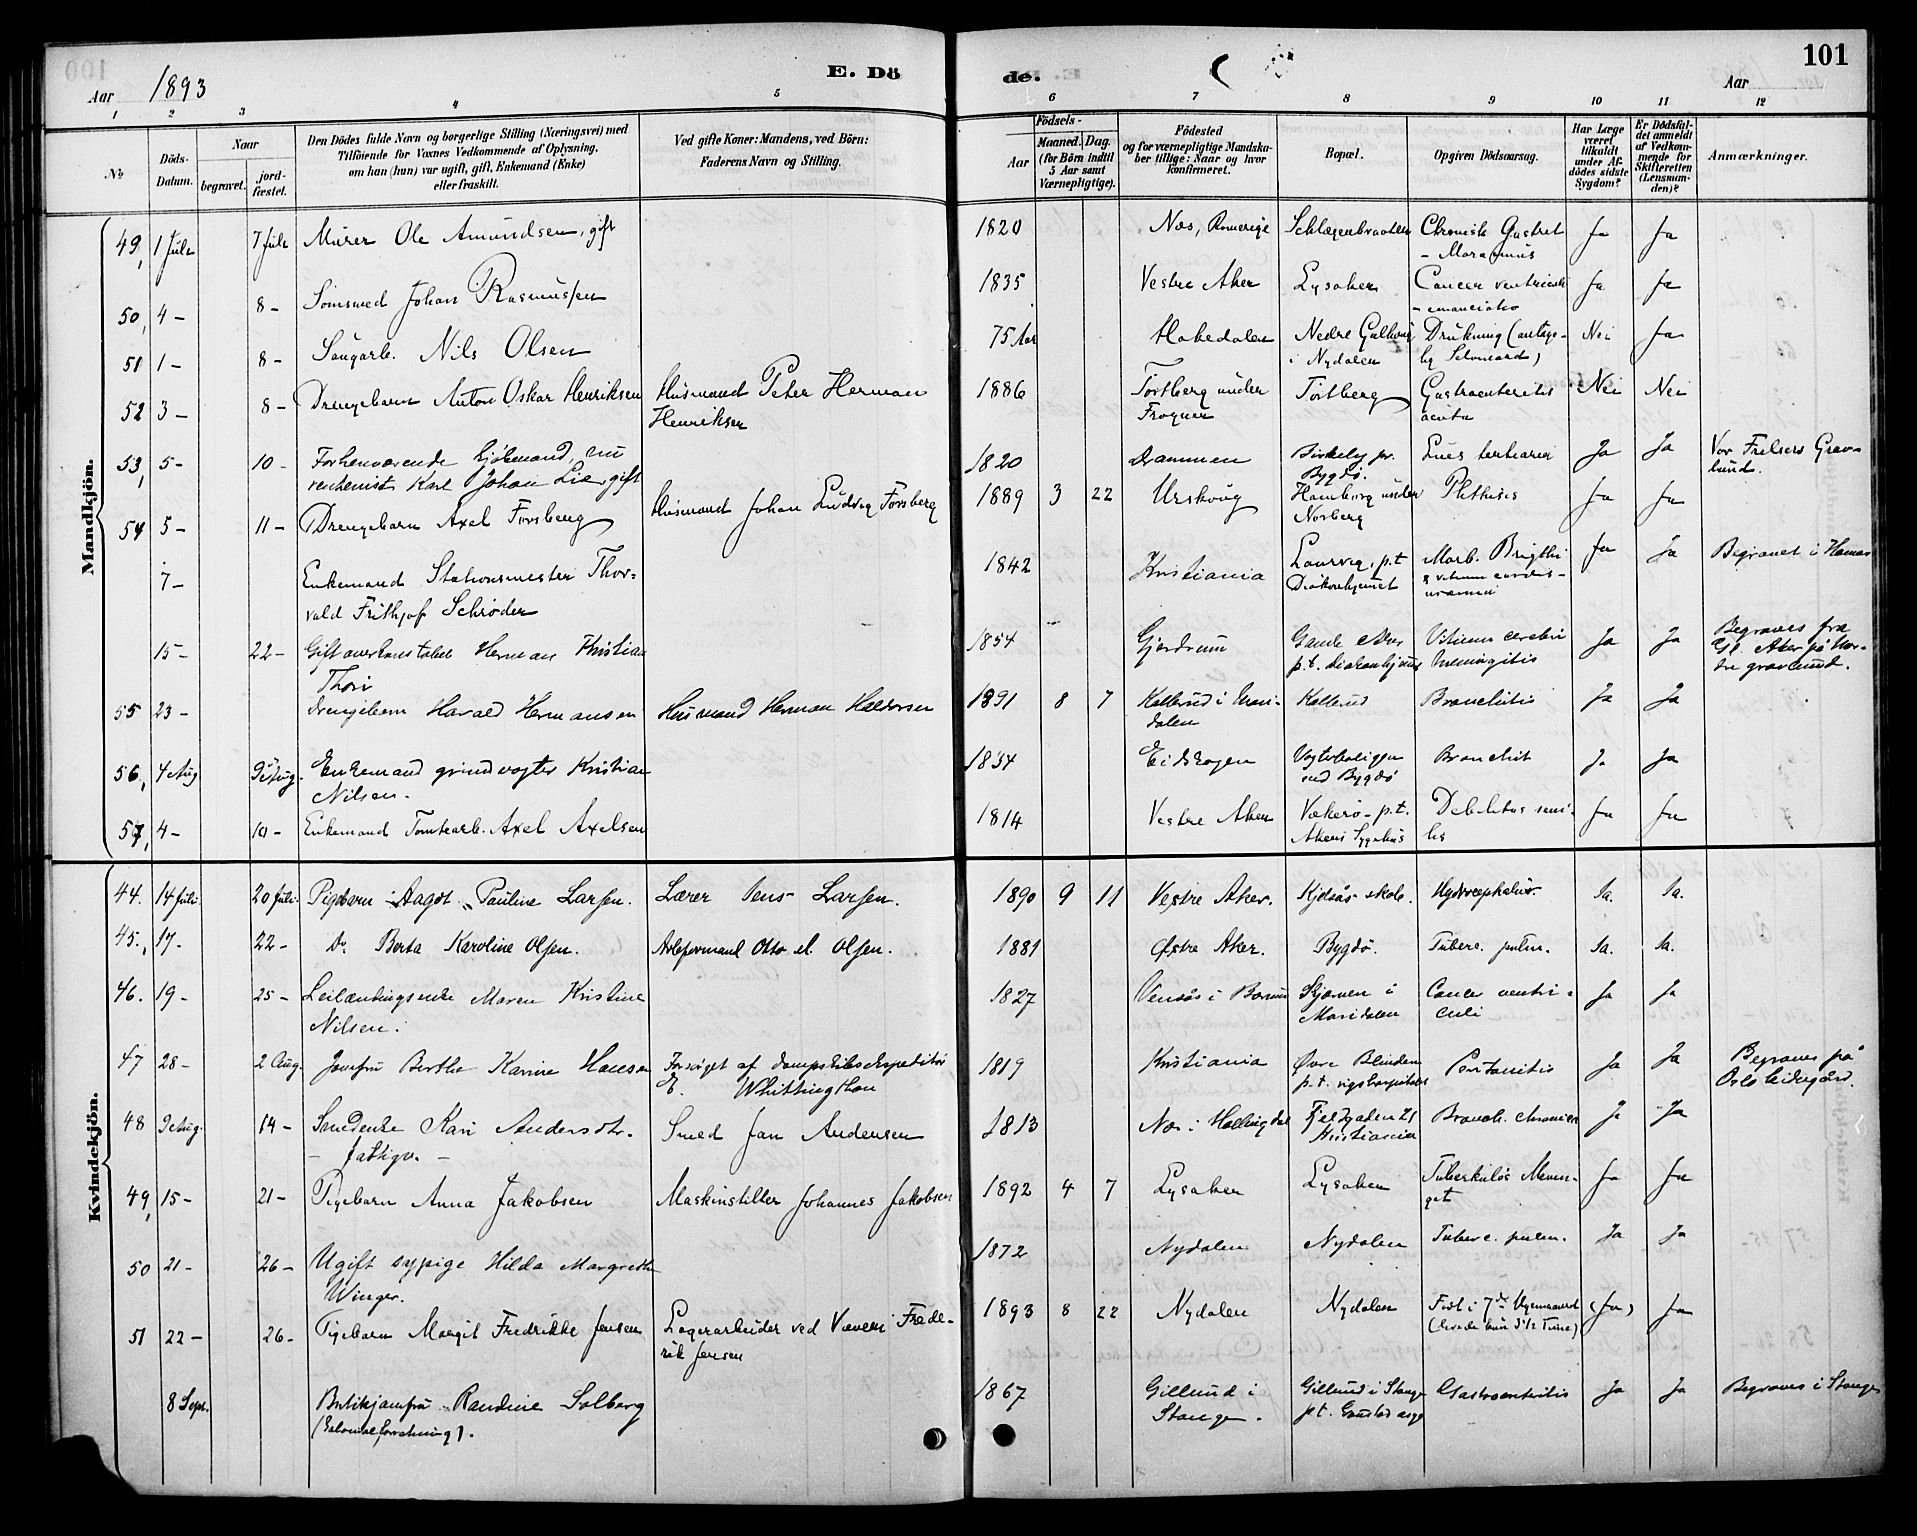 100
101
Aar 1893
E. Dö
de.
Aar
1 2 3 4 5
6 7 8 9 10 11 12
No
Döds-
Datum.
Naar
begravet.
jord-
fæstet.
Den Dödes fulde Navn og borgerlige Stilling (Næringsvei) med
Tilföiende for Voxnes Vedkommende af Oplysning,
om han (hun) var ugift, gift, Enkemand (Enke)
eller fraskilt.
Ved gifte Koner: Mandens, ved Börn:
Faderens Navn og Stilling.
Födsels-
Aar
Maaned. Dag.
(for Börn indtil
5 Aar samt
Værnepligtige).
Födested
og for værnepligtige Mandska-
ber tillige: Naar og hvor
konfirmeret.
Bopæl.
Opgiven Dödsaarsag.
Har Læge
været
tilkaldt
under Af-
dödes sidste
Sygdom?
Er Dödsfal-
det anmeldt
af Vedkom-
mende for
Skifteretten
(Lensman-
den)?
Anmærkninger.
Mandkjön.
49, 1 Juli 7 Juli Murer Ole Amundsen, gift 1820 Næs, Romerige Chronisk Gastrit Ja Ja
- Marasmus
50, 4 - 8 - Sømsmed Johan Rasmussen 1835 Vestre Aker Lysaker Cancer ventriculi Ja Ja
- emanciatio
51 1 - 8 - Saugarb. Nils Olsen 75 Aar Hakedalen Nedre Drukning (antage- Nei Ja
i Nydalen lig Selvmord)
52 3 - 8 - Drengebarn Anton Oskar Henriksen Husmand Peter Herman 1886 Tørtberg under Tørtberg Gastroenteritis Nei Nei
Henriksen Frogner acuta
53, 5 - 10 - Forhenværende kjøbmand, nu 1820 Drammen Birkely pr. Lues tertiaria Ja Ja Vor Frelsers Grav-
rentenist Karl Johan Lie, gift Bygdø. lund.
54 5 - 11 - Drengebarn Axel Forsberg Husmand Johan Ludvig Forsberg 1889 3 22 Urskoug Hamborg under Phthisis Ja Ja
Norberg
7 - Enkemand Stationsmester Thor- 1842 Kristiania Laurvig, p.t. Morb. Brigthi Ja Ja Begravet i Hamar
vald Frithjof Schrøder Diakonhjemet & vitium cordis -
uræmi
15 - 22 - Gift overkonstabel Herman Kristian 1854 Gjerdrum Gamle Aker Vitium cerebri Ja Ja Begraves fra
Thori p.t. diakonhjemet meningitis Gl. Aker på Nor-
dre gravlund.
55 23 - Drengebarn Harald Hermansen Husmand Herman Haldorsen 1891 8 7 Kallerud i Mari- Kallerud Bronchitis Ja Ja
dalen
56, 4 Aug 9 Aug. Enkemand grindvogter Kristian 1834 Eidskogen Vogterboligen Bronchit Ja Ja
Nilsen. ved Bygdø
57, 4 - 10 - Enkemand Tomtearb. Axel Axelsen 1814 Vestre Aker Vækerø - p.t. Debilitas seni- Ja Ja
Akers Sygehus lis
Kvindekjön.
44. 14 Juli. 20 Juli. Pigebarn Aagot Pauline Larsen. Lærer Jens Larsen. 1890 9 11 Vestre Aker. Kjelsås skole. Hydrocephalus Ja. Ja.
45., 17 - 22 - Do Berta Karoline Olsen. Arbeformand Otto A. Olsen. 1881 Østre Aker. Bygdø. Tuberc. pulm. Ja. Ja.
46. 19 - 25 - Leilændingsenke Maren Kristine 1827 i Bærum Skjærven i Cancer ventri- Ja Ja
Nilsen. Maridalen culi
47 28 - 2 Aug. Jomfru Berthe Karine Hansen Forsørget af dampskibsexpeditør 1819 Kristiania Øvre Blindern Peritonitis Ja Ja Begraves på
E. Whittingthon p.t. rigshospitalet Oslo kirkegård.
48 9 Aug. 14 - Smedenke Kari Andersdtr. Smed Jan Andersen 1813 Næs i Hallingdal Fjeldgaden 21 Bronch. chronica Ja Ja
- fattigv. - Kristiania
49, 15 - 21 - Pigebarn Anna Jakobsen Maskinstiller Johannes Jakobsen 1892 4 7 Lysaker Lysaker Tuberkuløs Menin- Ja Ja
git
50 21 - 26 - Ugift sypige Hilda Margrethe 1872 Nydalen Nydalen Tuberc. pulm. Ja Ja
Winger.
51 22 - 26 - Pigebarn Margit Fredrikke Jensen Lagerarbeider ved Væveri Frede- 1893 8 22 Nydalen Nydalen Født i 7de (Ja) Ja
rik Jensen (levede kun 3 1/2 Time)
8 Sept. Butikjomfru Randine Solberg 1867 Gillund i Gillund i Stange Gastroenteritis Ja Ja Begraves i Stange
(Kolonialforretning). Stange. p.t. Gaustad asyl